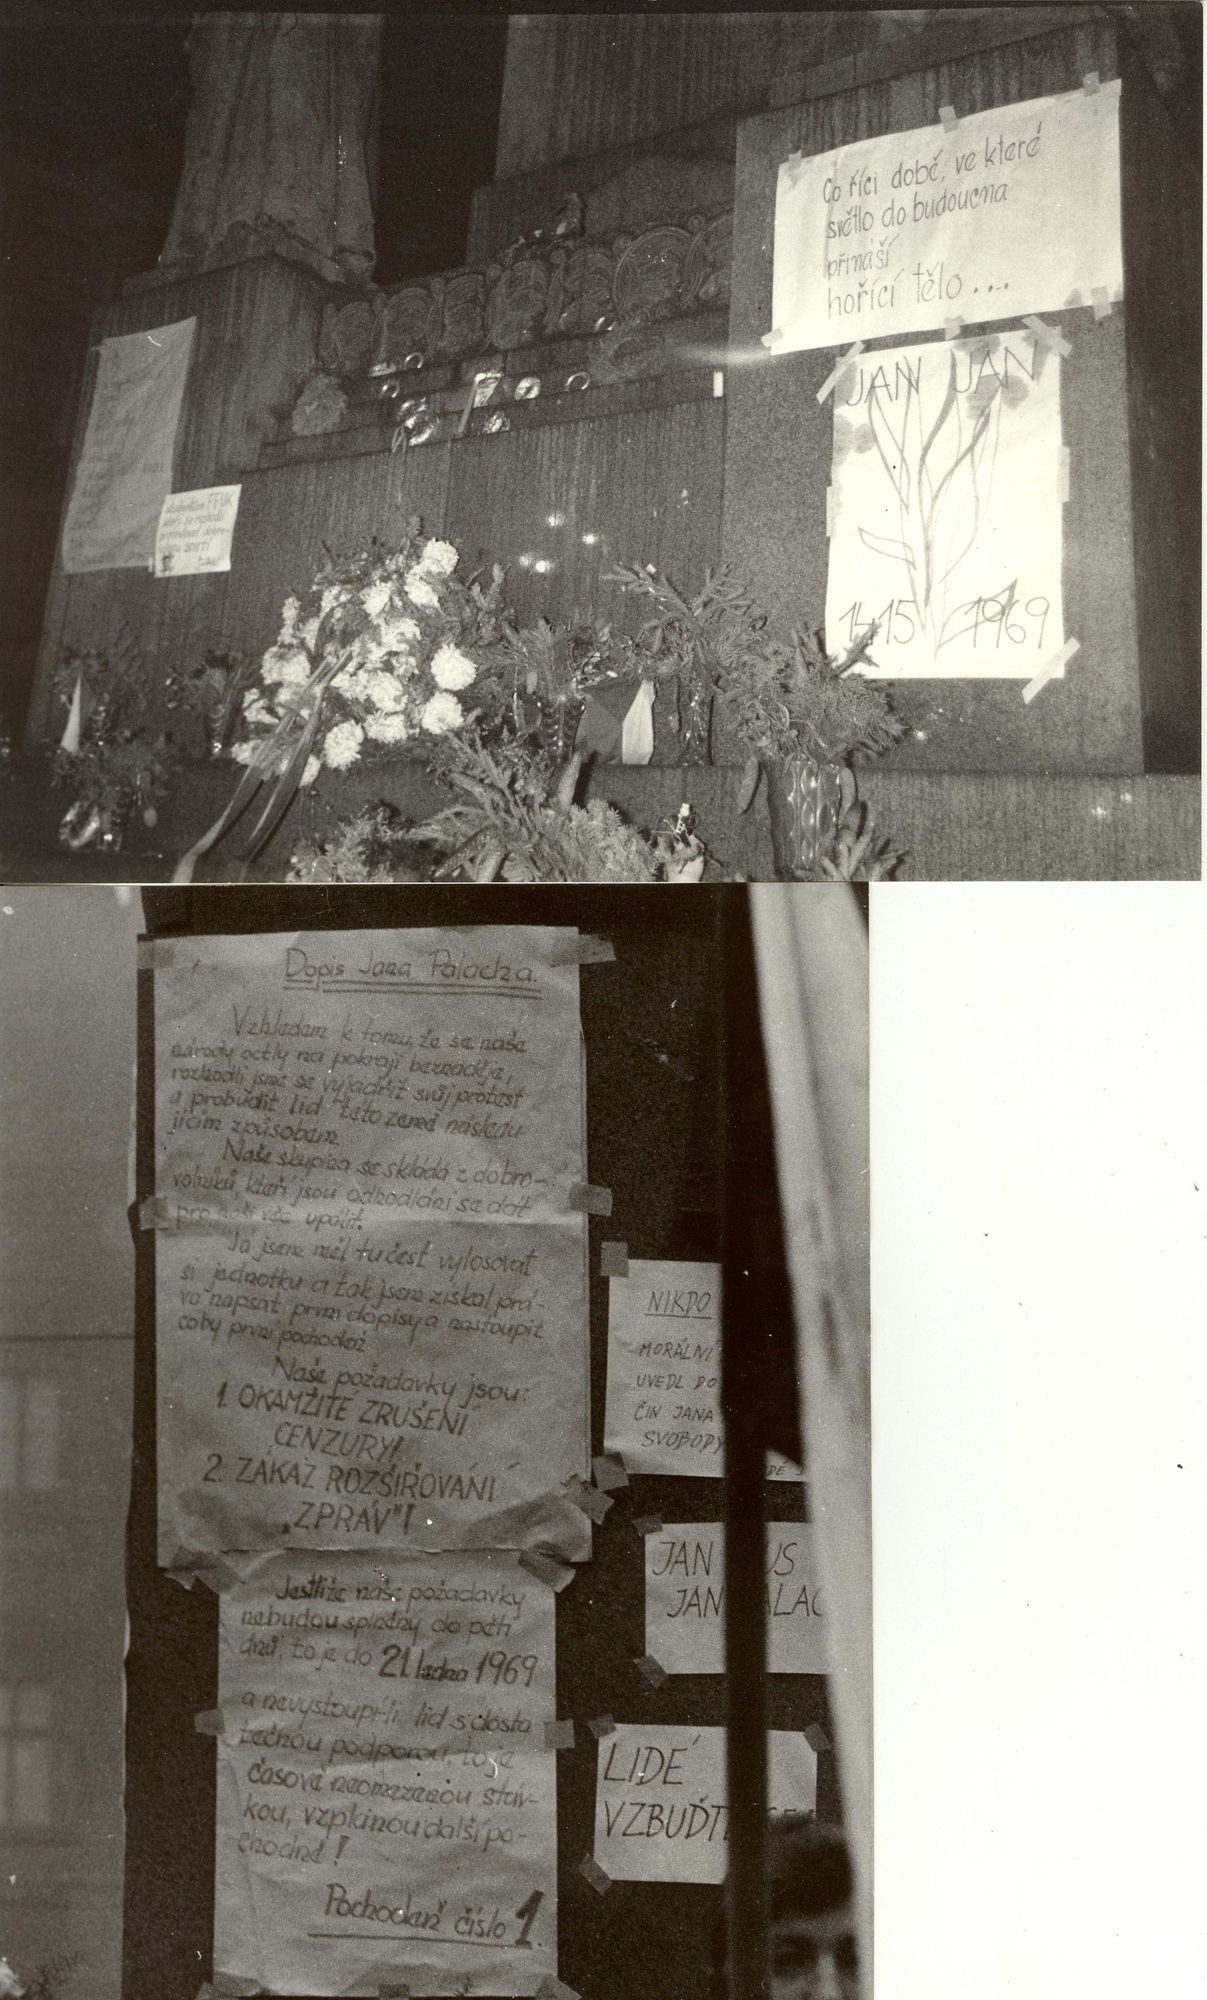 Co říci době, ve které
světlo do budoucna
přináší
hořící tělo....
JAN JAN
1415 1969
studentům FFUK
smrti
Dopis Jana Palacha.
Vzhledem k tomu, že se naše
národy octly na pokraji beznaděje,
rozhodli jsme se vyjádřit svůj protest
a probudit lid této země následu
jícím způsobem
Naše skupina se skládá z dobro-
volníků, kteří jsou odhodláni se dát
pro naši věc upálit.
Já jsem měl tu čest vylosovat
si jednotku a tak jsem získal prá-
vo napsat první dopisy a nastoupit
coby první pochodeň
Naše požadavky jsou:
1. OKAMŽITÉ ZRUŠENÍ
CENZURY!
2. ZÁKAZ ROZŠIŘOVÁNÍ
„ZPRÁV"!
Jestliže naše požadavky
nebudou splněny do pěti
dnů, to je do 21 ledna 1969
a nevystoupí-li lid s dosta
tečnou podporou, to je
časově neomezenou stáv-
kou, vzplanou další po-
chodně!
Pochodeň číslo 1.
NIKDO
MORÁLNÍ
UVEDL DO
ČIN JANA
SVOBODY
JAN US
JAN ALAC
LIDÉ
VZBUĎT